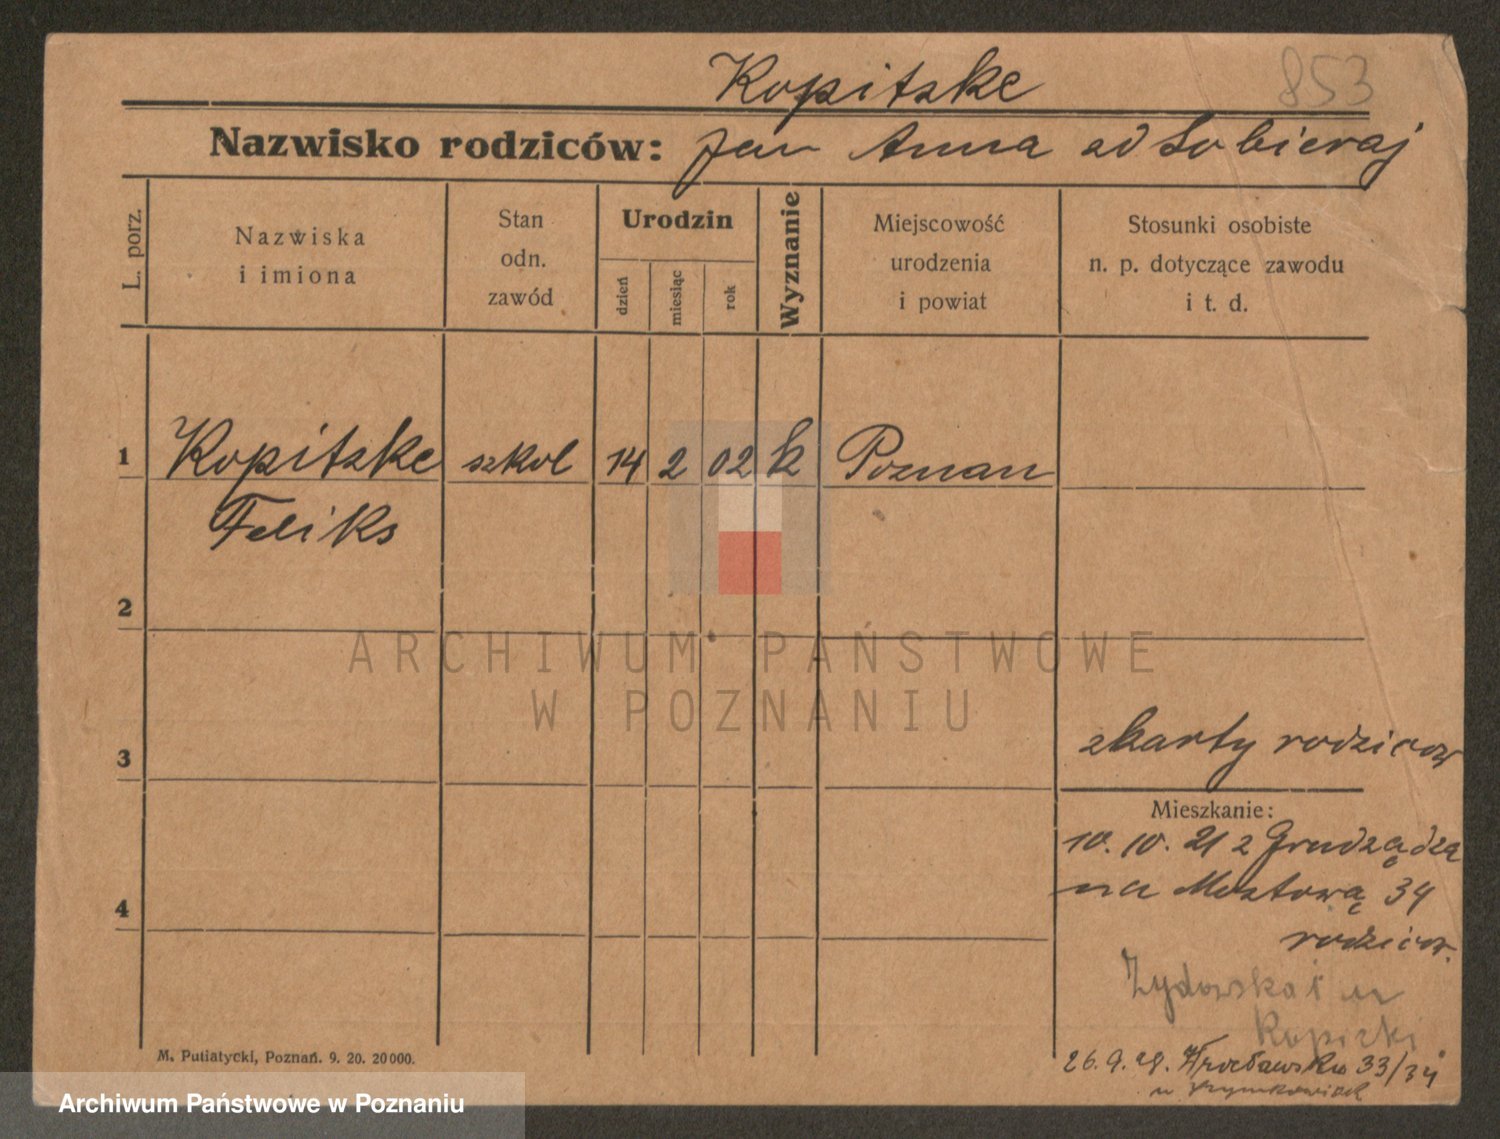 Kopitzke 853
Nazwisko rodziców: Jan Anna od Sobieraj
L. porz.
Nazwiska
i imiona
Stan
odn.
zawód
Urodzin
dzień
miesiąc
rok
Wyznanie
Miejscowość
urodzenia
i powiat
Stosunki osobiste
n. p. dotyczące zawodu
i t. d.
1 Kopitzke szkol 14 2 02 k Poznan
Feliks
2
ARCHIWUM PAŃSTWOWE
W POZNANIU
3 z karty rodziców
Mieszkanie:
10. 10. 21 z Grudządza
4 na Mostową 34
rodzicow.
Żydowska u
Kopicki
26. 9. Wrocławska 33/34
M. Putiatycki, Poznań. 9. 20. 20000.
Archiwum Państwowe w Poznaniu